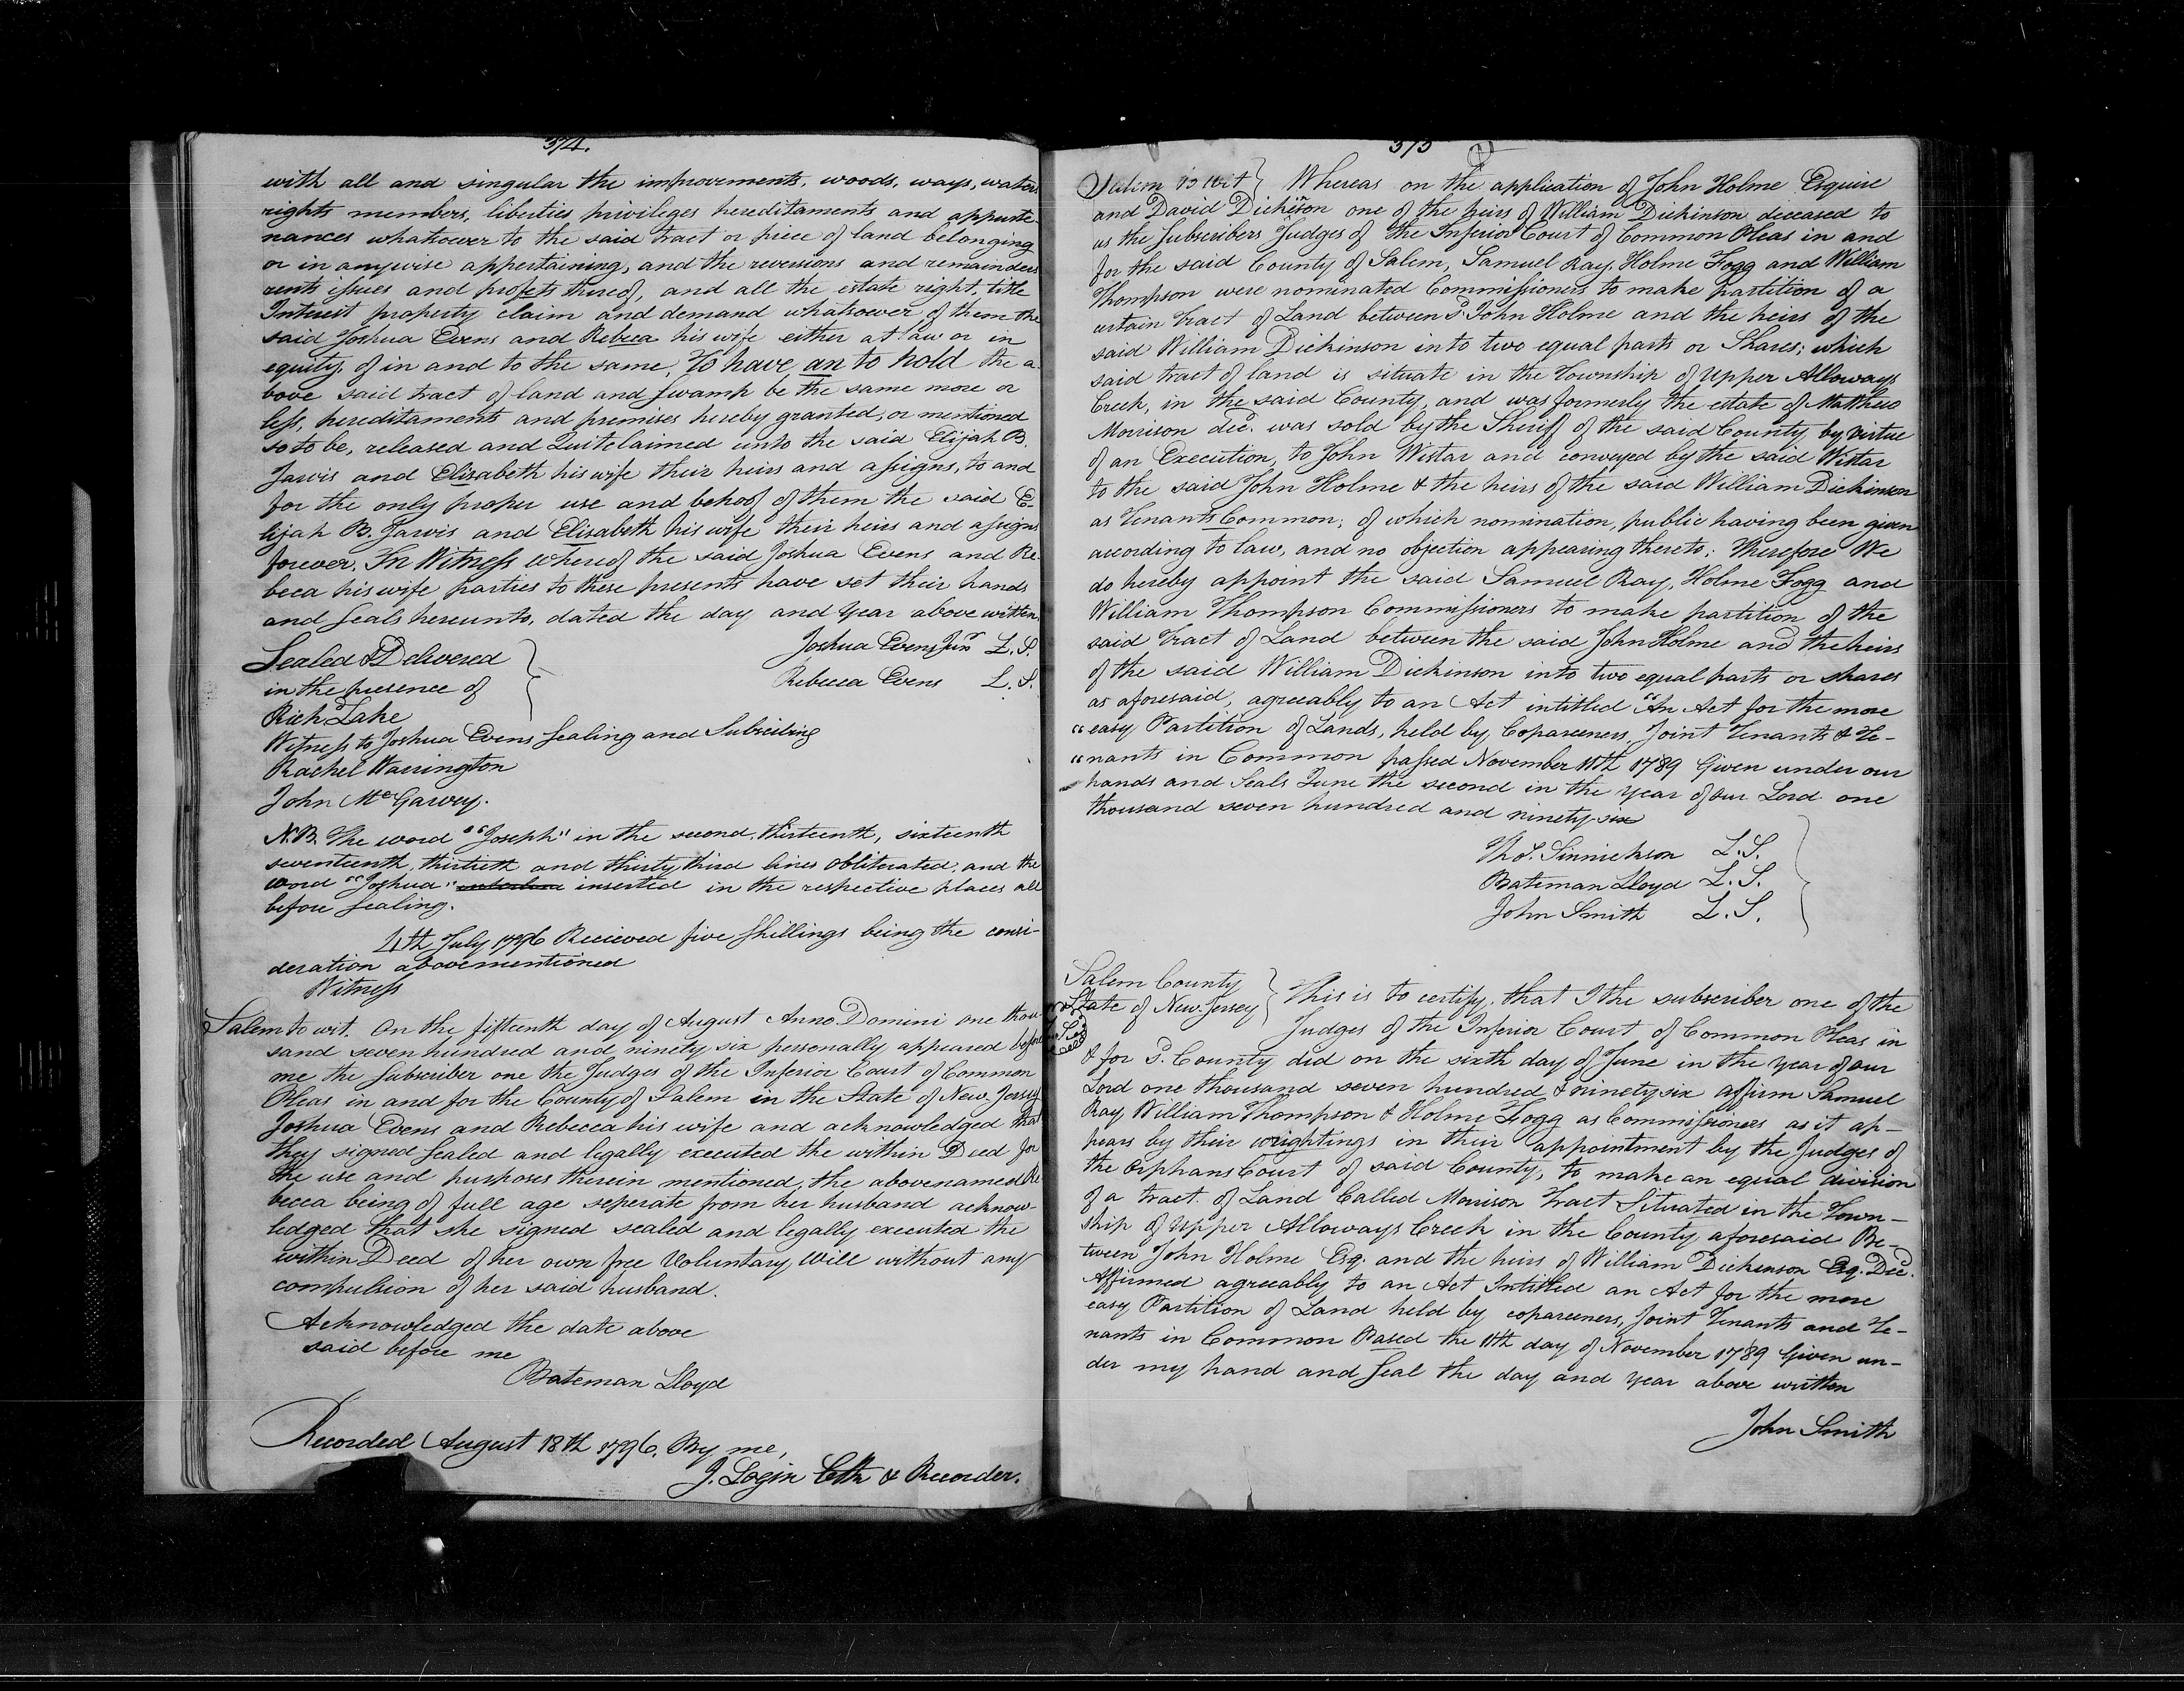 374.
with all and singular the improvements, woods, ways, waters
rights members, liberties privileges hereditaments and appurte-
nances whatsower to the said tract or piece of land belonging
or in anywise appertaining, and the reversions and remainders
rents issues and profets thereof, and all the estate right, title
Interest property claim and demand whatsower of them the
said Joshua Evens and Rebeca his wife either at law or in
equity, of in and to the same, To have an to hold the a-
bove said tract of land and swamp be the same more or
less, hereditaments and premises hereby granted, or mentioned
so to be, released and Quiteclaimed unto the said Elijah B.
Jarvis and Elisabeth his wife their heirs and assigns, to and
for the only proper use and behoof of them the said E-
lijah B. Jarvis and Elisabeth his wife their heirs and assigns
forever. In Witness Whereof the said Joshua Evens and Re
beca his wife parties to these presents have set their hands
and seals hereunto, dated the day and year above written
Sealed & Delivered
in the presence of
Joshua Evens Junr L.S.
Rebecca Evens L.S.
Richd Lake
Witness to Joshua Evens sealing and Subscribing
Rachel Warrington
John McGarvey.
N.B. The word "Joseph" in the second, thirteenth, sixteenth
seventeenth, thirtieth and thirty third lines obliterated, and the
word "Joshua" inserted in the respective places all
before sealing.
4th July 1796 Recieved five shillings being the consi-
deration abovementioned
Witness
Salem to wit. On the fifteenth day of August Anno Domini one thou-
sand seven hundred and ninety six personally appeared before
me the subscriber one the Judges of the Inferior Court of Common
Pleas in and for the County of Salem in the State of New Jersey
Joshua Evens and Rebecca his wife and acknowledged that
they signed sealed and legally executed the within Deed for
the use and purposes therein mentioned, the abovenamed Re
becca being of full age seperate from her husband acknow-
ledged that she signed sealed and legally executed the
within Deed of her own free Voluntary Will without any
compulsion of her said husband.
Acknowledged the date above
said before me
Bateman Lloyd
Recorded August 18th 1796. By me,
J. Login Clk & Recorder.
375
Salem to wit } Whereas on the application of John Holme Esquire
and David Dickinson one of the heirs of William Dickinson deceased to
us the Subscribers Judges of the Inferior Court of Common Pleas in and
for the said County of Salem, Samuel Ray, Holme Fogg and William
Thompson were nominated Commissioners to make partition of a
certain Tract of Land between sd. John Holme and the heirs of the
said William Dickinson into two equal parts or Shares; which
said tract of land is situate in the Township of Upper Alloways
Creek, in the said County, and was formerly the estate of Matthew
Morrison decd. was sold by the Sheriff of the said County by virtue
of an Execution, to John Wistar and conveyed by the said Wistar
to the said John Holme & the heirs of the said William Dickinson
as Tenants Common; of which nomination, public having been given
according to law, and no objection appearing thereto; Therefore We
do hereby appoint the said Samuel Ray, Holme Fogg and
William Thompson Commissioners to make partition of the
said Tract of Land between the said John Holme and the heirs
of the said William Dickinson into two equal parts or shares
as aforesaid, agreeably to an Act intitled "An Act for the more
"easy Partition of Lands, held by Coparceners, Joint Tenants & Te-
"nants in Common passed November 11th 1789 Given under our
hands and Seals June the second in the year of our Lord one
thousand seven hundred and ninety-six
Thos. Sinnickson L.S.
Bateman Lloyd L.S.
John Smith L.S.
Salem County
State of New Jersey } This is to certify, that I the subscriber one of the
Judges of the Inferior Court of Common Pleas in
& for sd. County did on the sixth day of June in the year of our
Lord one thousand seven hundred & ninety six affirm Samuel
Ray William Thompson & Holme Fogg as Commissioners as it ap-
pears by their wrightings in their appointment by the Judges of
the Orphans Court of said County, to make an equal division
of a tract of Land Called Morrison Tract Situated in the Town-
ship of Upper Alloways Creek in the County aforesaid Be-
tween John Holme Esq. and the heirs of William Dickenson Esq. Decd.
Affirmed agreeably to an Act Intitled an Act for the more
easy Partition of Land held by coparceners, Joint Tenants and Te-
nants in Common Pased the 11th day of November 1789 Given un-
der my hand and Seal the day and year above written
John Smith